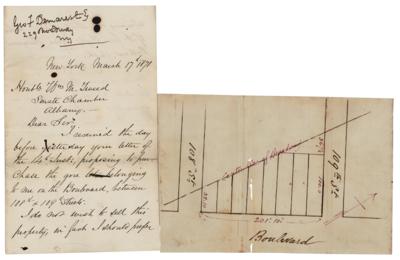 Geo F Demarest Esq
229 Broadway
NY
New York March 17th 1871
Honble Wm M. Tweed
Senate Chamber
Albany.
Dear Sir.
I received the day
before yesterday your letter of
the 14th Inst, proposing to pur-
chase the gore belonging
to me on the Boulevard, between
108th & 109th Streets.
I do not wish to sell this
property, in fact I should prefer
108 St
109th St
Boulevard